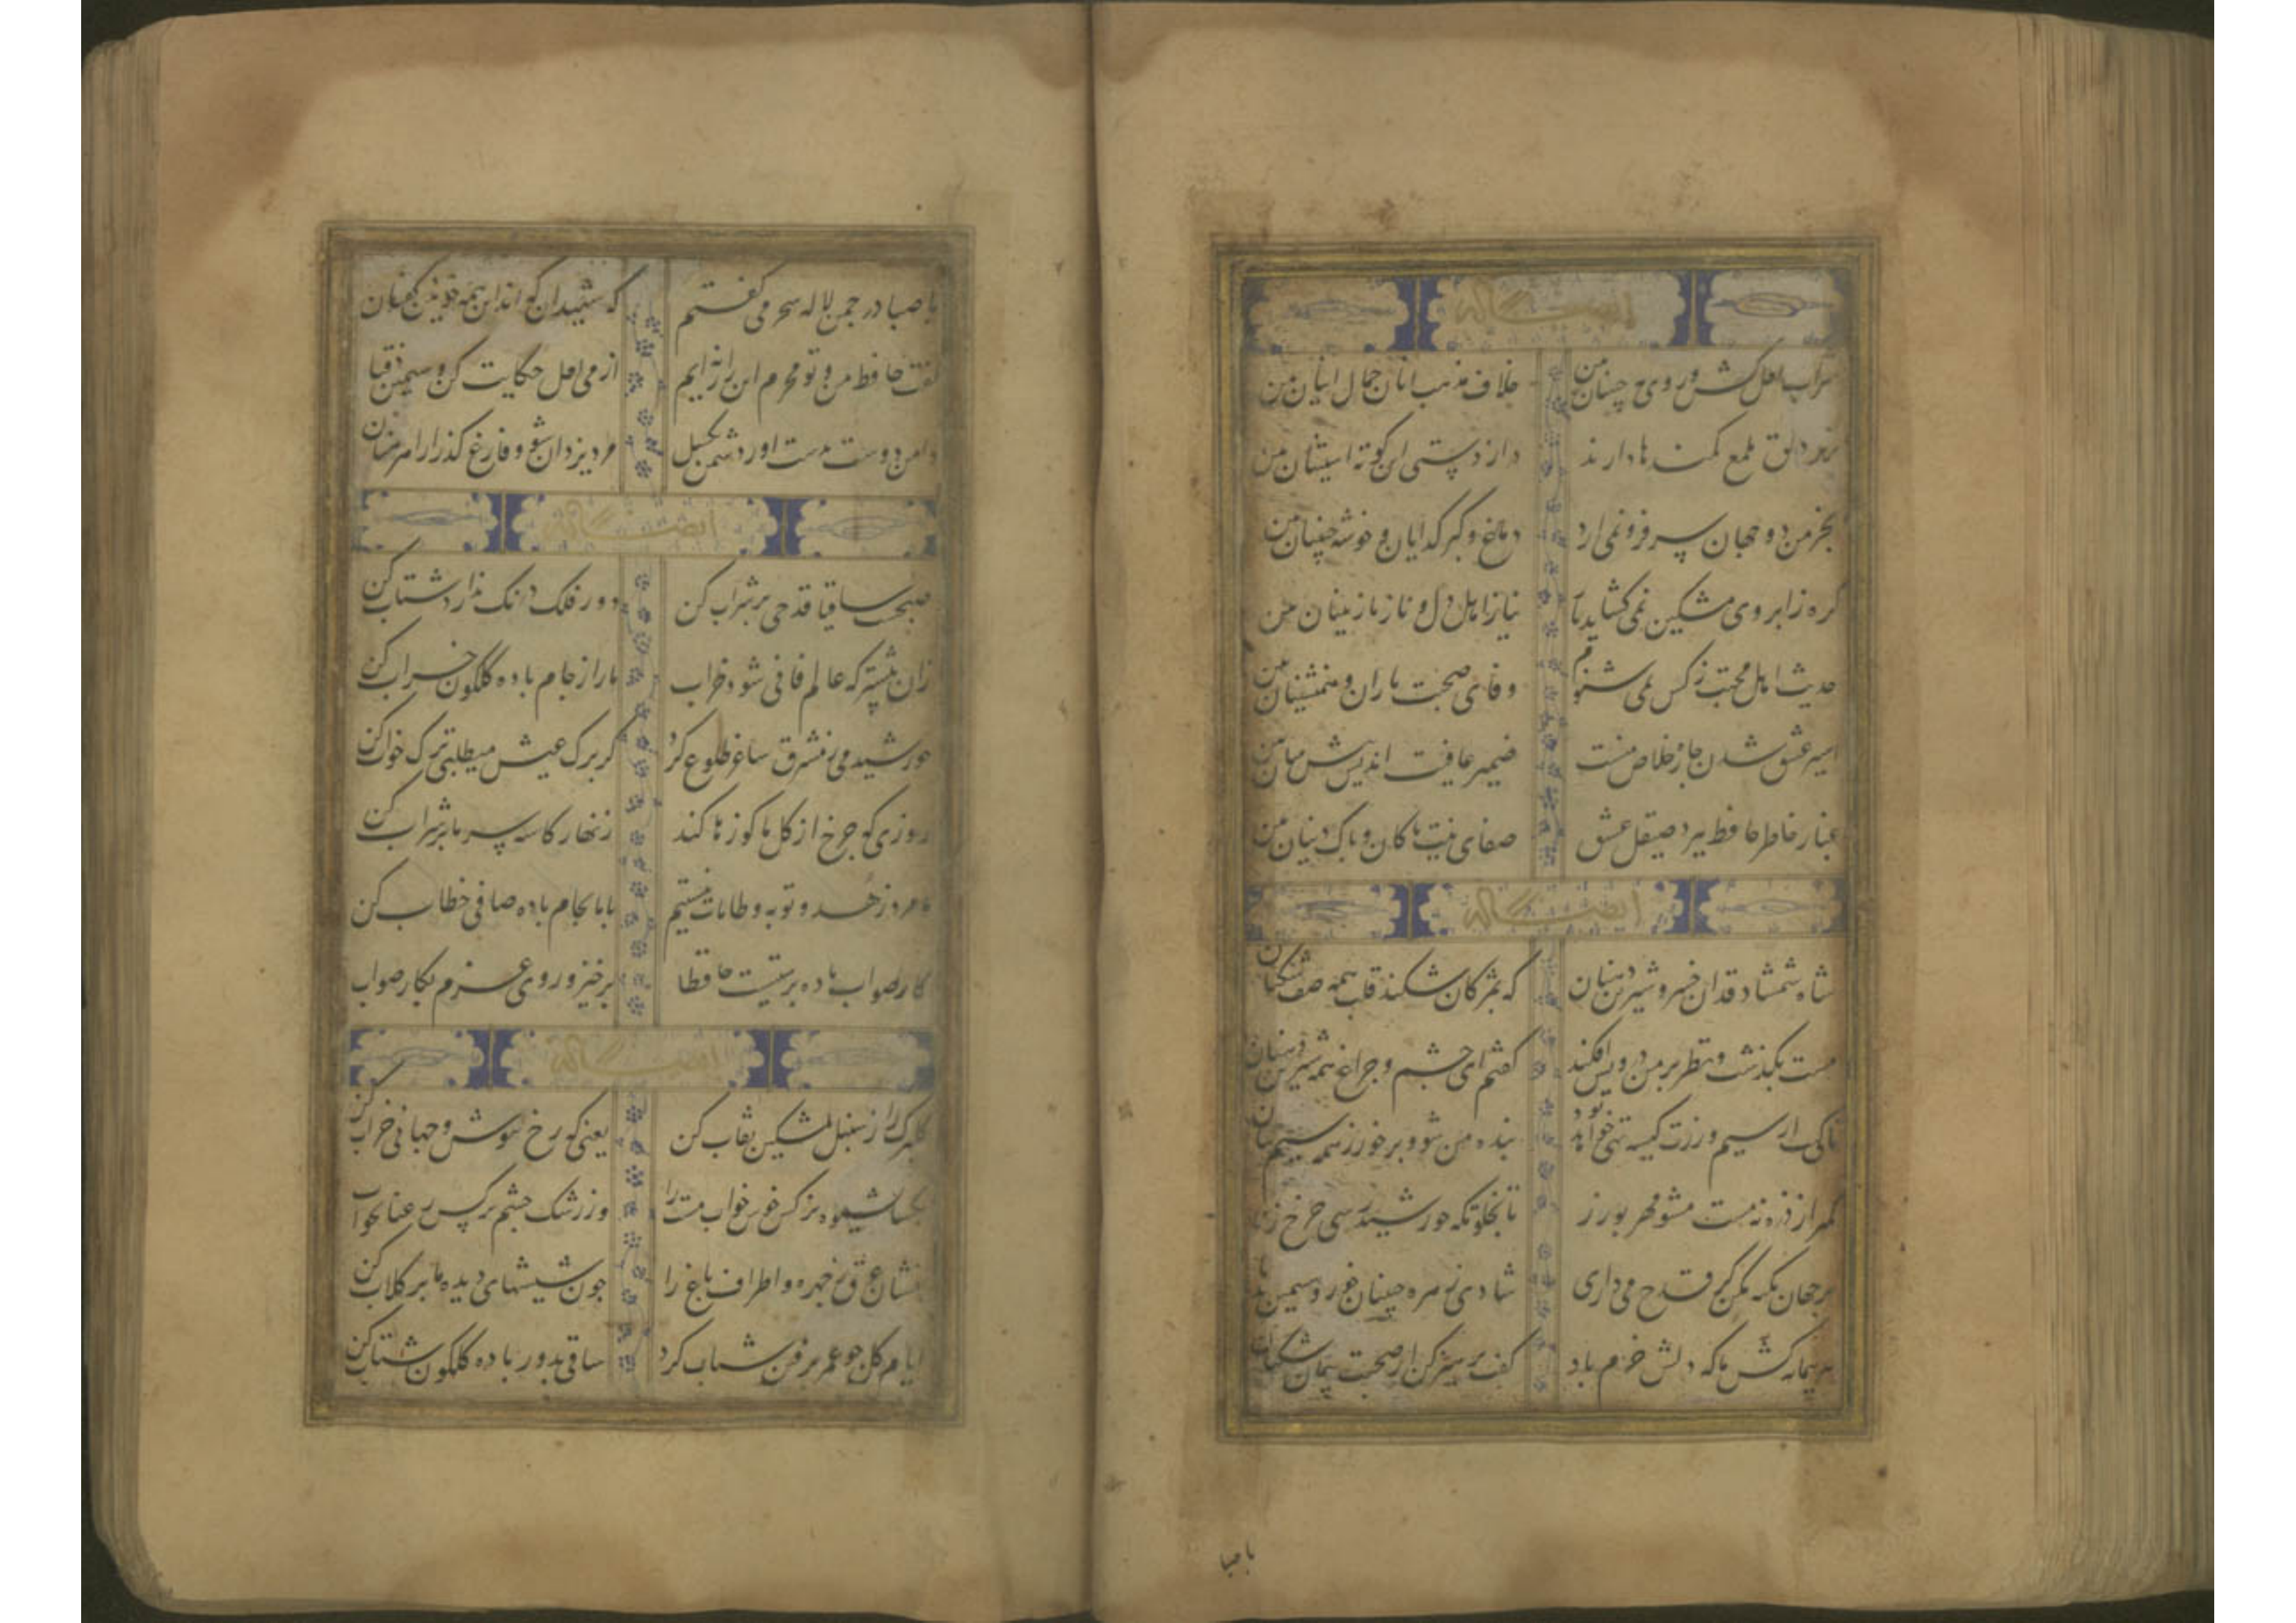 ایضاً له
شراب لعل کش و روی مه جبینان بین خلاف مذهب آنان جمال اینان بین
بزیر دلق ملمع کمندها دارند درازدستی این کوته آستینان بین
بخرمن دو جهان سر فرو نمی آرد دماغ و کبر گدایان و خوشه چینان بین
گره ز ابروی مشکین نمی گشاید یار نیاز اهل دل و ناز نازنینان بین
حدیث اهل محبت ز کس نمی شنوم وفای صحبت یاران و همنشینان بین
اسیر عشق شدن چاره خلاص منست ضمیر عافیت اندیش پیش بینان بین
غبار خاطر حافظ ببرد صیقل عشق صفای نیت پاکان و پاک دینان بین
ایضاً له
شاه شمشاد قدان خسرو شیرین دهنان که بمژگان شکند قلب همه صف شکنان
مست بگذشت و نظر بر من درویش افکند گفتم ای چشم و چراغ همه شیرین دهنان
تا کی از سیم و زرت کیسه تهی خواهد بود بنده من شو و برخور ز همه سیم تنان
کمتر از ذره نه پست مشو مهر بورز تا بخلوتگه خورشید رسی چرخ زنان
بر جهان تکیه مکن گر قدح می داری شادی زهره جبینان خور و سیمین بدنان
پیر پیمانه کش ما که دلش خرم باد گفت پرهیز کن از صحبت پیمان شکنان
با صبا
با صبا در چمن لاله سحر می گفتم که شهیدان که اند این همه خونین کفنان
گفت حافظ من و تو محرم این راز نه ایم از می لعل حکایت کن و سیمین ذقنان
دامن دوست بدست آور و دشمن بگسل مرد یزدان شو و فارغ گذر از اهرمنان
ایضاً له
صبحست ساقیا قدحی پر شراب کن دور فلک درنگ ندارد شتاب کن
زان پیشتر که عالم فانی شود خراب ما را ز جام باده گلگون خراب کن
خورشید می ز مشرق ساغر طلوع کرد گر برگ عیش میطلبی ترک خواب کن
روزی که چرخ از گل ما کوزها کند زنهار کاسه سر ما پر شراب کن
ما مرد زهد و توبه و طامات نیستیم با ما بجام باده صافی خطاب کن
کار صواب باده پرستیست حافظا برخیز و روی عزم بکار صواب
ایضاً له
گلبرگ را ز سنبل مشکین نقاب کن یعنی که رخ بپوش و جهانی خراب کن
بگشا بشیوه نرگس خوش خواب مست را وز رشک چشم نرگس رعنا بخواب
بفشان عرق ز چهره و اطراف باغ را چون شیشهای دیده ما پر گلاب کن
ایام گل چو عمر برفتن شتاب کرد ساقی بدور باده گلگون شتاب کن